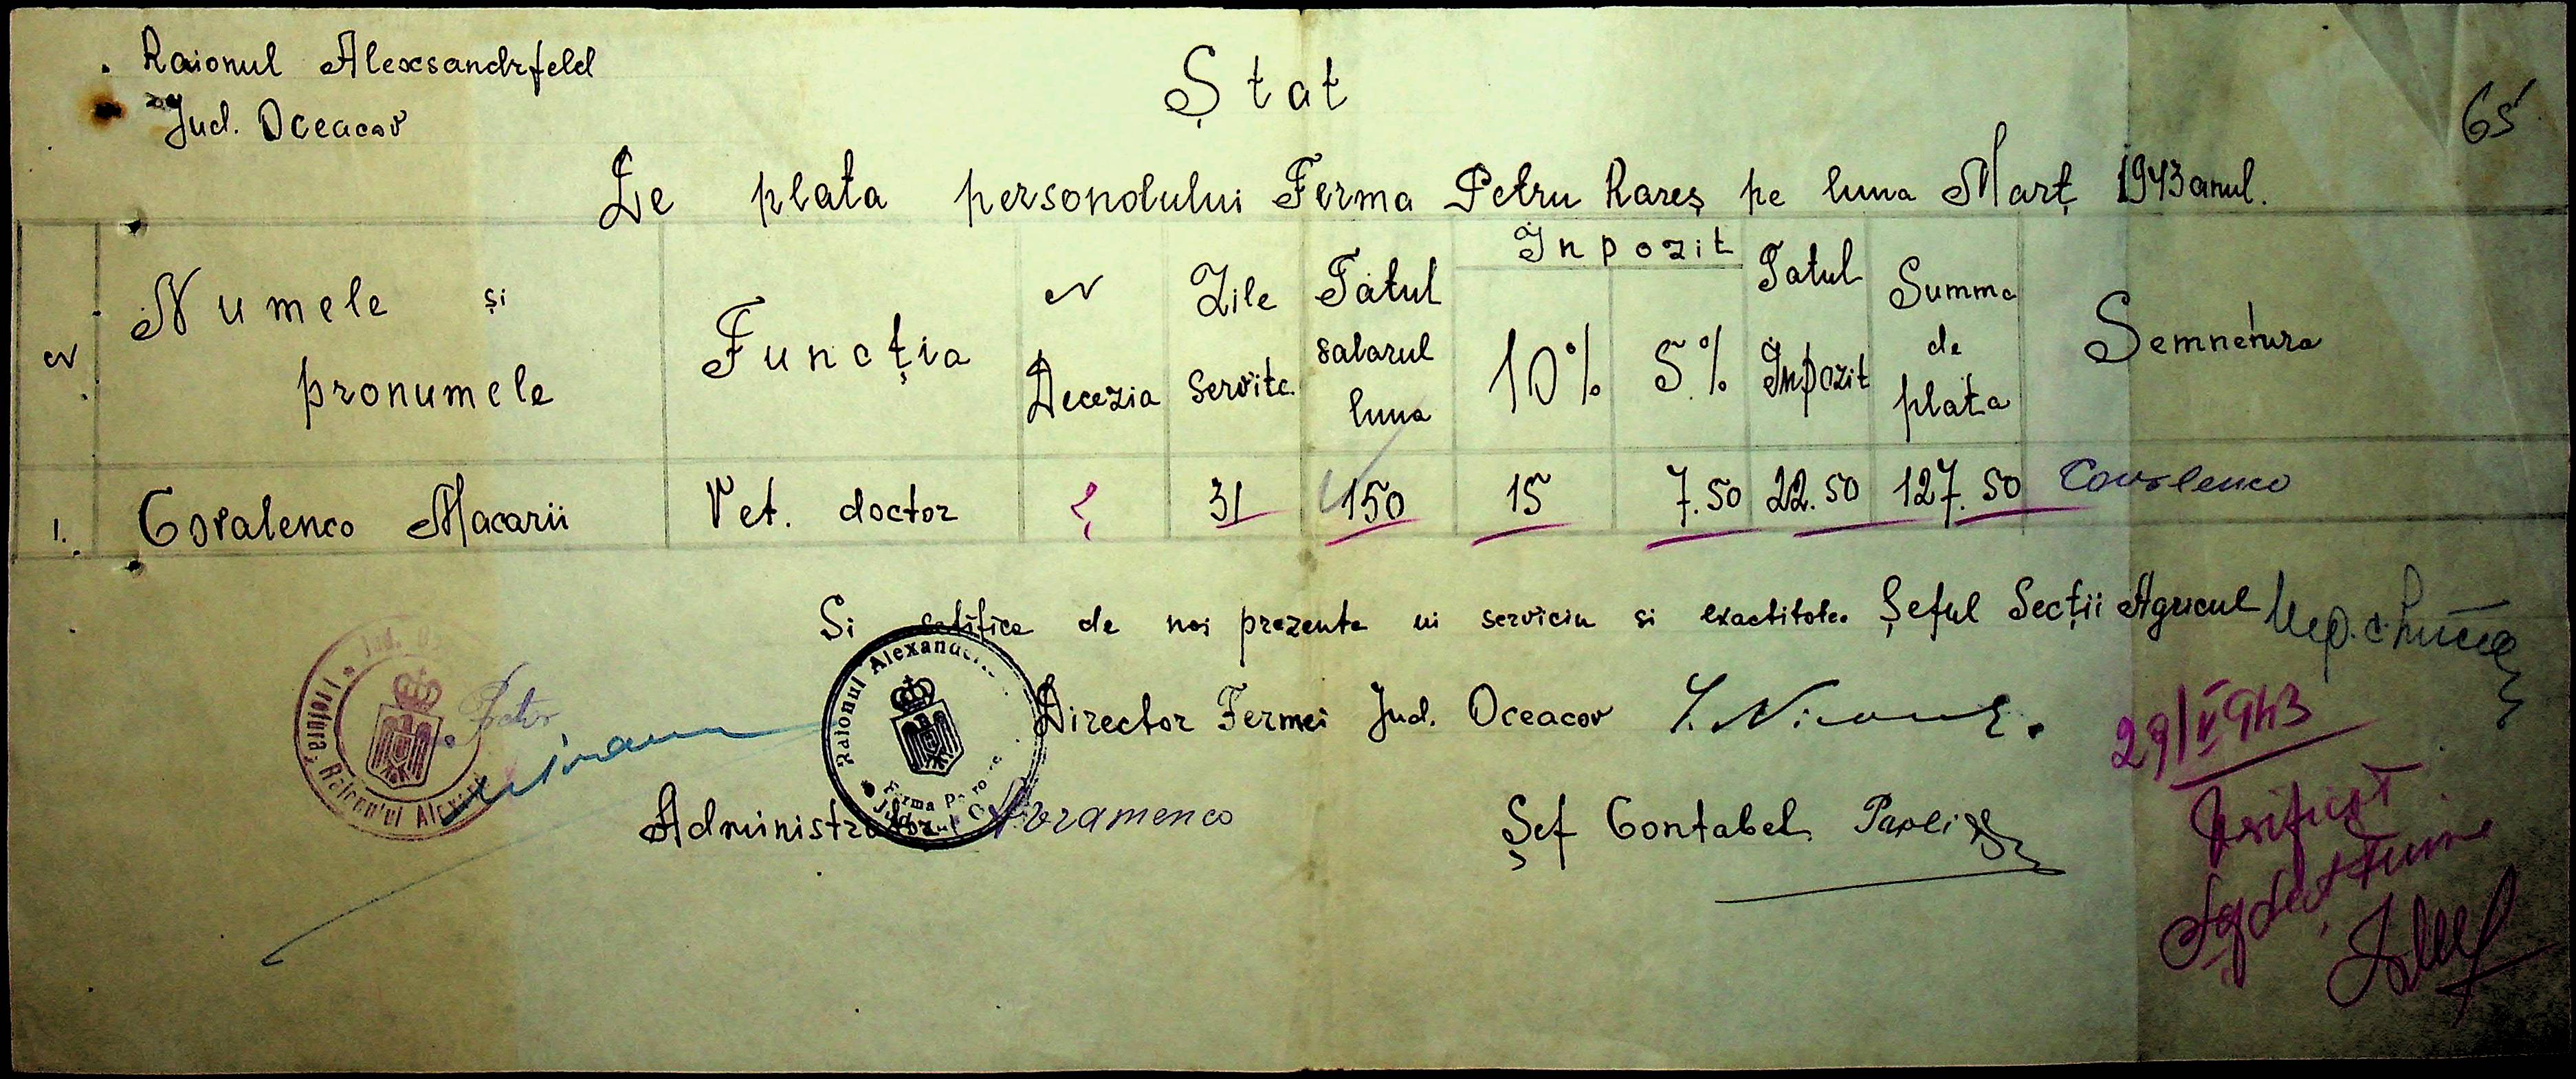 Raionul Alexsandrfeld
Jud. Oceacov
Ștat
65
De plata personolului Ferma Petru Rareș pe luna Marț 1943 anul.
N Numele și pronumele
Funcția
N Decezia
Zile servite
Tatul salarul luna
Inpozit
10% 5%
Tatul Inpozit
Summa de plata
Semnetura
1. Covalenco Macarii Vet. doctor 31 150 15 7.50 22.50 127.50 Covalenco
Si setifica de noi prezenta in serviciu si exactitatea Șeful Secții Agricul
Raionul
Director Fermei Jud. Oceacov
29/V 943
Administrator Avramenco
Șef Contabel
Verificat